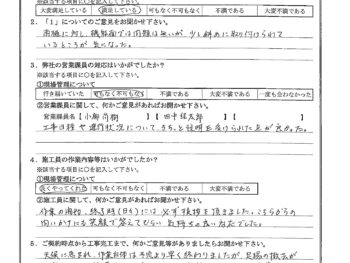 ※該当する項目に○を記入して下さい。
大変満足している 満足している 可もなく不可もなく 不満である 大変不満である
2．「1」についてのご意見をお聞かせ下さい。
両極に対し、機能面では問題は無いが、少し斜めに取り付けられて
いるところが気になった。
3．弊社の営業課員の対応はいかがでしたか？
※該当する項目に○を記入して下さい。
①現場管理について
行き届いていた 可もなく不可もなく 不満である 大変不満である 一度も会わなかった
②営業課員に関して、何かご意見があればお聞かせ下さい。
営業課員名【 】【田中 】【 】
工事日程や進行状況について、きちっと説明を受けられた点が良かった。
4．施工員の作業内容等はいかがでしたか？
※該当する項目に○を記入して下さい。
①現場管理について
良くやってくれた 可もなく不可もなく 不満である 大変不満である
②施工員に関して、何かご意見があればお聞かせ下さい。
作業の開始、終了時には必ず挨拶を頂きました。こちらからの
問いかけにも笑顔で答えてもらい、気持ちの良い対応でした。
5．ご契約時点から工事完工まで、何かご意見等がありましたらお聞かせ下さい。
天候に恵まれ、作業自体は予定より早く終わりましたが、足場の撤去が